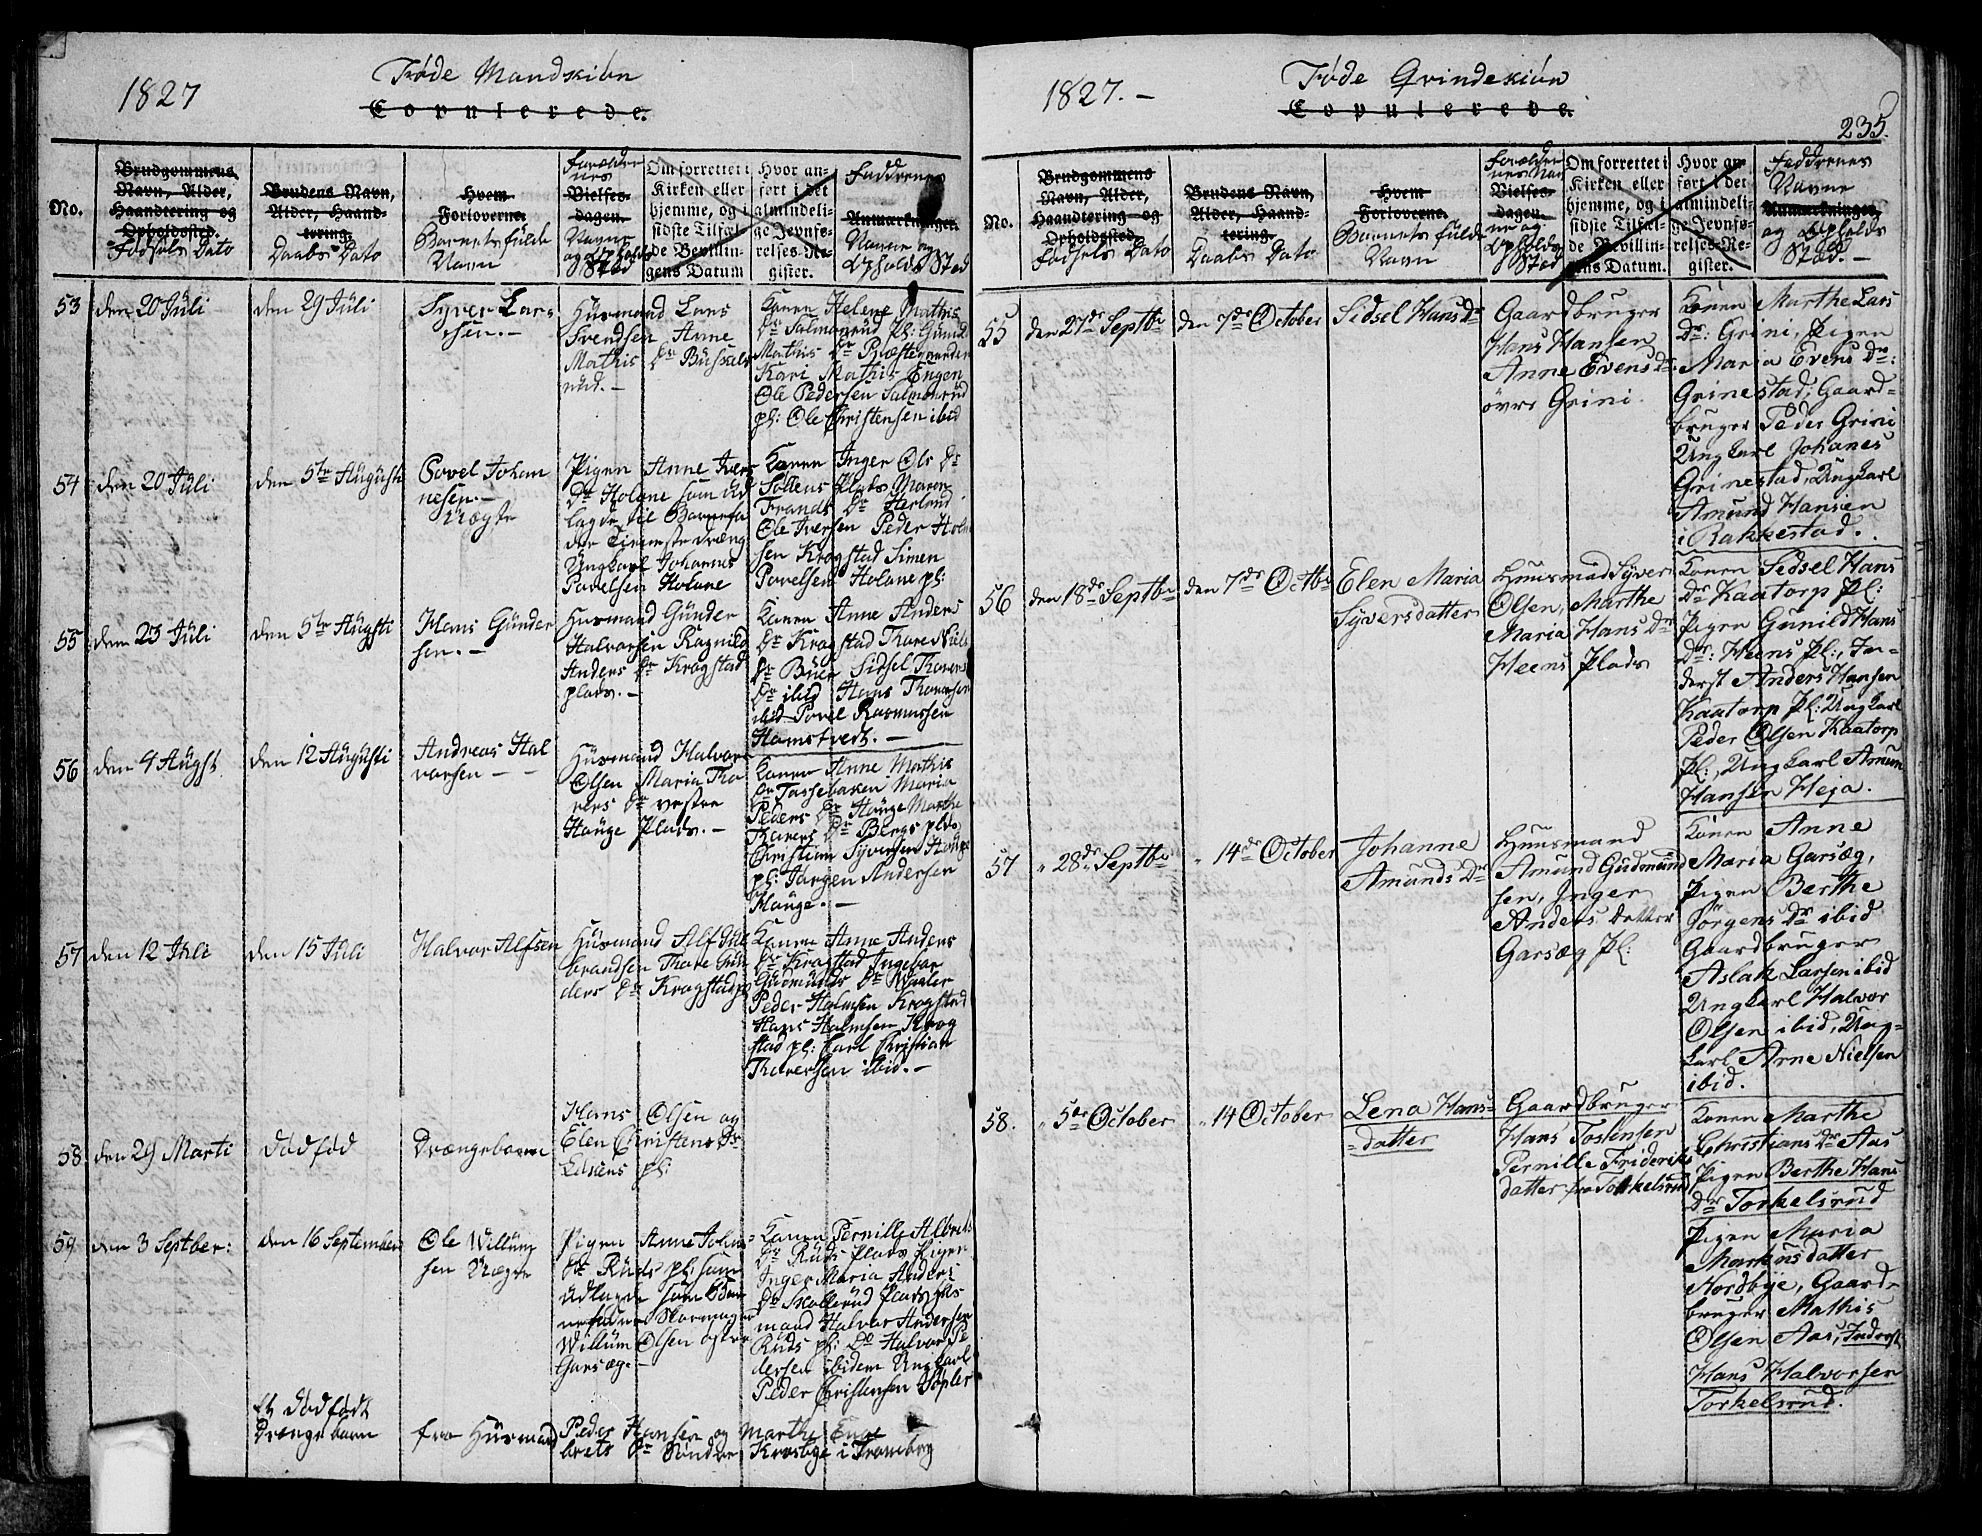 1827
Føde Mandkiøn
Copulerede.
No.
Brudgommens
Navn, Alder,
Haandtering og
Opholdssted.
Fødsels Dato
Brudens Navn,
Alder, Haand-
tering.
Daabs Dato
Hvem
Forloverne.
Barnets fulde
Navn
Forældre
nes
Vielses-
dagen.
Navne
og Opholds
Stæd
Om forrettet i
Kirken eller
hjemme, og i
sidste Tilfæl-
de Bevillin-
gens Datum
Hvor an-
ført i det
almindeli-
ge Jevnfø-
relses-Re-
gister.
Faddrenes
Anmærkninger.
Navne og
Opholds Stæd
53
den 20 Juli
den 29 Juli
Syver Lar-
sen.-
Huusmand Lars
Svendsen Anne
Mathis Dr Bussels
rud.-
Konen Helene Mathis
Dr Salmonrud Pl: Gunild
Mathis Dr Præstegaarden
Kari Mathis Engen
Ole Pedersen Salmonrud
pl: Ole Christensen ibid
54
den 20 Juli
den 5te August
Povel Johan
nesen.-
Uægte
Pigen Anne Ivers
Dr Holane som ud
lagde til Barnefa
der Tieneste dræng
Ungkarl Johannes
Povelsen Holane
Konen Inger Ols Dr
Sollens Plads Maren
Frands Dr Herland
Ole Iversen Peder Hol
sen Krogstad Simen
Povelsen Holane pl:
55
den 23 Juli
den 5te Augusti
Hans Gunder
sen.-
Husmand Gunder
Halvorsen Ragnild
Anders Dr Krogstad
plads.-
Konen Anne Anders
Dr Krogstad Thore Niels
Dr Buer Sidsel Thorens
Dr ibid Hans Thoresen
ibid Povel Rasmussen
Hamstvedt.-
56
den 4 Augst
den 12 Augusti
Andreas Hal
vorsen - -
Husmand Halvor
Olsen Maria Tho
rers Dr vestre
Hauge Plads.-
Konen Anne Mathis
Dr Tassebaken Maria
Peders Dr Hauge Marthe
Thorers Dr Bergs plds
Christian Syversen Hauge
pl: Jørgen Andersen
Hauge.-
57
den 12 Juli
den 15 Juli
Halvor Alfsen
Husmand Alf Gul
brandsen Thore Gun
ders Dr Krogstadpl
Konen Anne Anders
Dr Krogstad Ingebor
Gudmunds Dr Waaler
Peder Holmsen Krogstad
Hans Holmsen Krog
stad pl: Carl Christian
Thoversen ibid.-
58
den 29 Marti
dødfød
Drængebarn
Hans Olsen og
Elen Christians Dr
pl:
59
den 3 Septber:
den 16 September
Ole Willum
sen Uægte
Pigen Anne Johns
Dr Ruds pl: som
udlagde som Bar
nefader Skomager
Willum Olsen
Garsæg.-
Konen Pernille Albrets
Dr Ruds Plads Pigen
Inger Maria Anders
Dr Skollerud Plads Hus
mand Halvor Andersen
Ruds pl: Do Halvor Pe
dersen ibidem Ungkarl
Peder Christensen
et dødfødt
Drængebarn
fra Husmand
Peder Hansen og Marthe Enge
brets Dr Søndre Krosbye i Tromborg
1827.-
Føde Qvindekiøn
Copulerede.
235.
No.
Brudgommens
Navn, Alder,
Haandtering og
Opholdssted.
Fødsels Dato
Brudens Navn,
Alder, Haand-
tering.
Daabs Dato
Hvem
Forloverne.
Barnets fulde
Navn
Forældre
nes Nav
Vielses-
dagen.
ne og
Opholds
Stæd
Om forrettet i
Kirken eller
hjemme, og i
sidste Tilfæl-
de Bevillin-
gens Datum.
Hvor an-
ført i det
almindeli-
ge Jevnfø-
relses-Re-
gister.
Faddrenes
Navne
Anmærkninger.
og Opholds
Stæd.-
55
den 27de Septbr
den 7de October
Sidsel Hans Dr
Gaardbruger
Hans Hansen
Anne Evens Dr
øvre Grini.
Konen Marthe Lars
Dr: Grini, Pigen
Maria Evens Dr:
Grinestad, Gaard-
bruger Peder Grini
Ungkarl Johanes
Grinestad, Ungkarl
Amund Hansen
i Rakkestad.
56
den 18de Septbr
den 7de Octbr
Elen Maria
Syversdatter
Huusmad Syver
Olsen, Marthe
Maria Hans Dr
Heens Plads
Konen Sidsel Hans
Dr Kaatorp Pl:
Pigen Gunild Hans
Dr: Heens Pl:, In-
derst Anders Hansen
Kaatorp Pl: Ungkarl
Peder Olsen Kaatorp
Pl:, Ungkarl Amun
Hansen Heja.
57
" 28de Septbr
" 14de October
Johanne
Amunds Dr
Huusmand
Amund Gudmund
sen, Inger
Anders datter
Garsæg Pl:
Konen Anne
Maria Garsæg,
Pigen Berthe
Jörgens Dr ibid
Gaardbruger
Aslak Larsen ibid
Ungkarl Halvor
Olsen ibid, Ung-
karl Arne Nielsen
ibid.
58.
" 5te October
" 14 October
Lena Hans-
=datter
Gaardbruger
Hans Tostensen
Pernille Frideriks
datter fra Torkelsrud
Konen Marthe
Christians Dr Aas
Pigen Berthe Hans
Dr Torkelsrud
Pigen Maria
Markusdatter
Nordbye, Gaard-
bruger Mathis
Olsen Aas, Inderst
Hans Halvorsen
Torkelsrud.